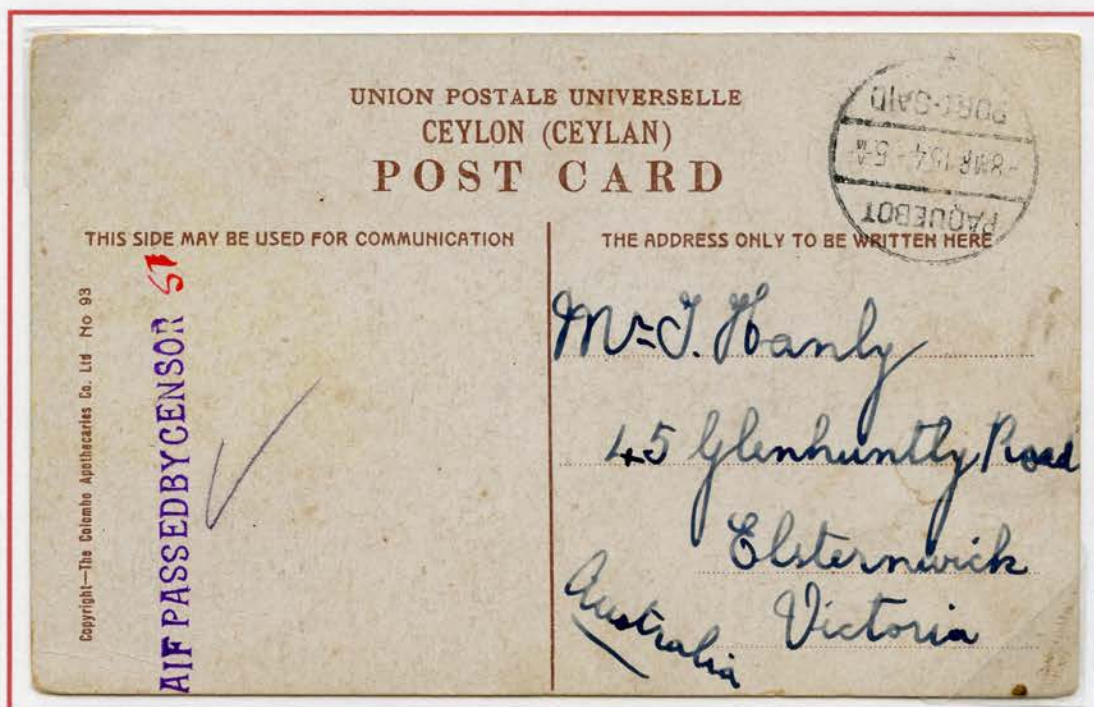 UNION POSTALE UNIVERSELLE
CEYLON (CEYLAN)
POST CARD
THIS SIDE MAY BE USED FOR COMMUNICATION
THE ADDRESS ONLY TO BE WRITTEN HERE
Copyright—The Colombo Apothecaries Co. Ltd No 93
AIF PASSED BY CENSOR
PORT-SAID
PAQUEBOT
Mr J. Hanly
45 Glenhuntly Road
Elsternwick
Victoria
Australia